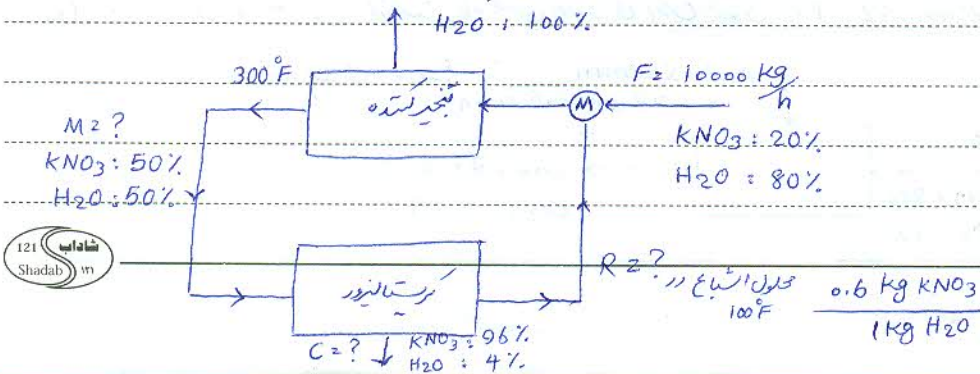 H2O : 100%
300°F
تبخیر کننده
M
F = 10000 kg/h
M = ?
KNO3 : 50%
H2O : 50%
KNO3 : 20%
H2O : 80%
121 شاداب
Shadab ۱۲۱
کریستالیزور
R = ?
محلول اشباع در 100°F
0.6 kg KNO3
1 kg H2O
C = ?
KNO3 : 96%
H2O : 4%